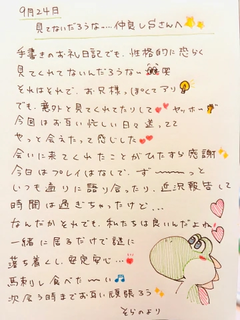 9月24日
見てないだろうな…仲良しSさんへ
手書きのお礼日記でも、性格的に恐らく
見てくれてないんだろうなー
それはそれで、お兄様。ぽくてアリ
でも、意外と見てくれてたりして ヤッホー
今回はお互い忙しい日々送ってて
やっと会えたって感じした
会いに来てくれたことがひたすら感謝
今日はプレイはなしで、ずーーーっと
いつも通りに語り合ったり、近況報告して
時間は過ぎちゃったけど…
なんだかそれでも、私たちは良いんだよね
一緒に居るだけで謎に
落ち着くし、安定安心…
馬刺し食べたーい
次会う時までお互い頑張ろう
そらのより